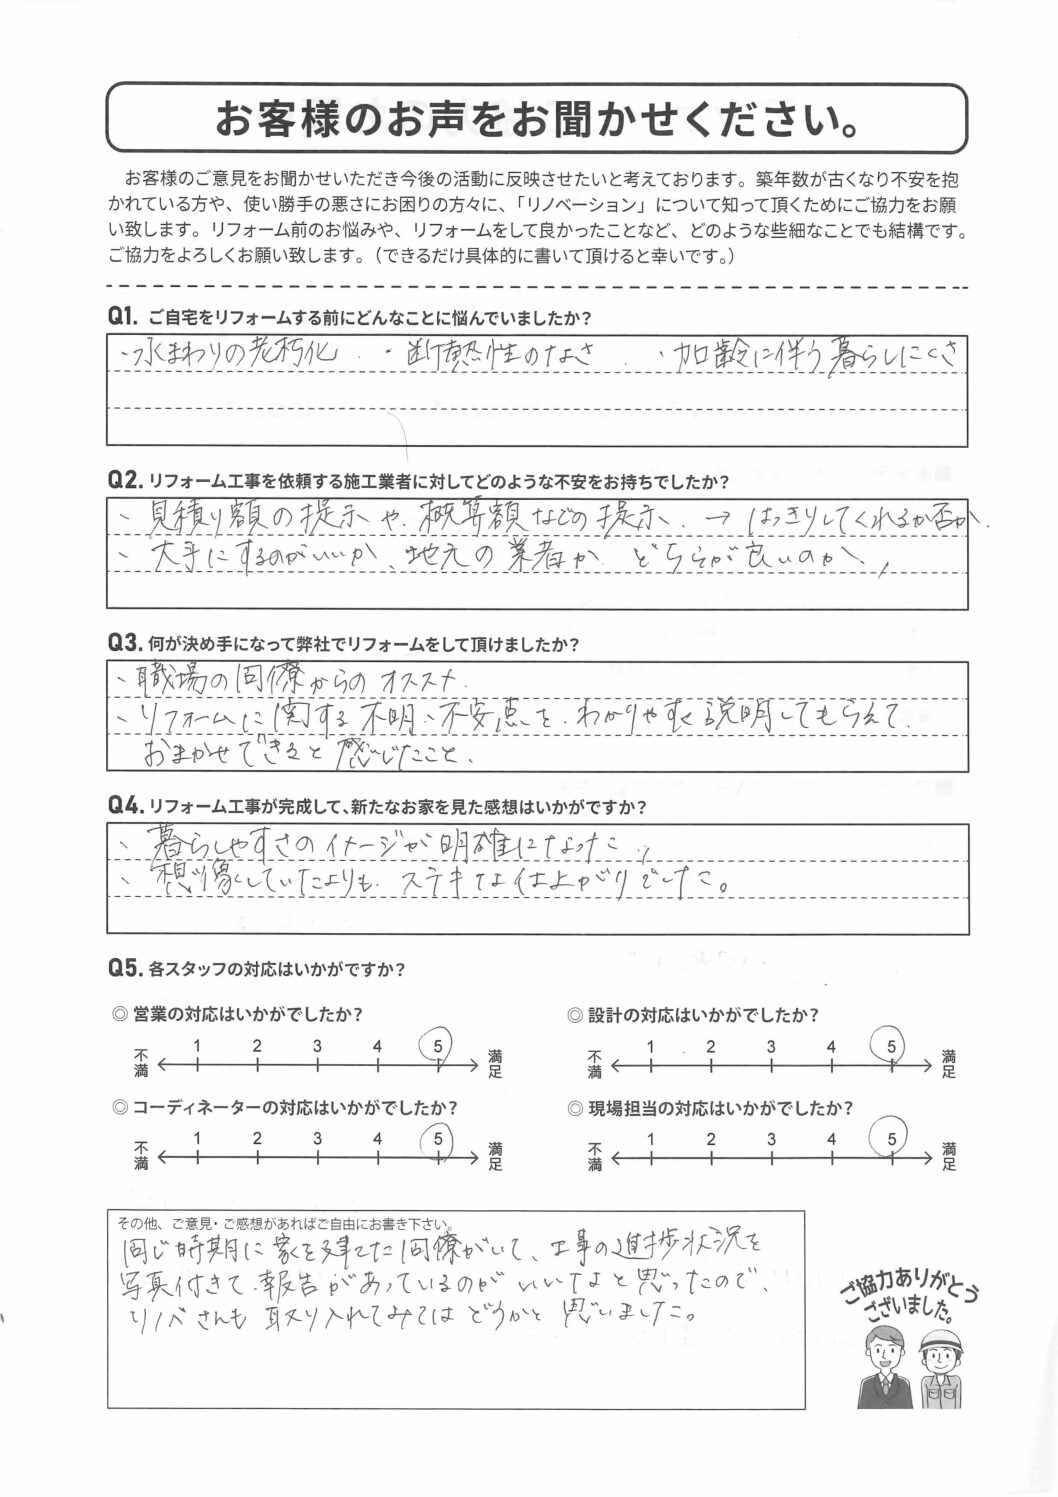 お客様のお声をお聞かせください。
お客様のご意見をお聞かせいただき今後の活動に反映させたいと考えております。築年数が古くなり不安を抱
かれている方や、使い勝手の悪さにお困りの方々に、「リノベーション」について知って頂くためにご協力をお願
い致します。リフォーム前のお悩みや、リフォームをして良かったことなど、どのような些細なことでも結構です。
ご協力をよろしくお願い致します。（できるだけ具体的に書いて頂けると幸いです。）
Q1. ご自宅をリフォームする前にどんなことに悩んでいましたか？
・水まわりの老朽化 ・断熱性のなさ ・加齢に伴う暮らしにくさ
Q2. リフォーム工事を依頼する施工業者に対してどのような不安をお持ちでしたか？
、見積り額の提示や、概算額などの提示、→はっきりしてくれるか否か、
、大手にするのがいいか、地元の業者か、どちらが良いのか、
Q3. 何が決め手になって弊社でリフォームをして頂けましたか？
、職場の同僚からのオススメ、
、リフォームに関する不明、不安点を、わかりやすく説明してもらえて、
おまかせできると感じたこと、
Q4. リフォーム工事が完成して、新たなお家を見た感想はいかがですか？
、暮らしやすさのイメージが明確になった、
、想像していたよりも、ステキな仕上がりでした。
Q5. 各スタッフの対応はいかがですか？
◎ 営業の対応はいかがでしたか？ ◎ 設計の対応はいかがでしたか？
不満 1 2 3 4 5 満足 不満 1 2 3 4 5 満足
◎ コーディネーターの対応はいかがでしたか？ ◎ 現場担当の対応はいかがでしたか？
不満 1 2 3 4 5 満足 不満 1 2 3 4 5 満足
その他、ご意見・ご感想があればご自由にお書き下さい。
同じ時期に家を建てた同僚がいて、工事の進捗状況を
写真付きで、報告があっているのがいいなと思ったので、
リノベさんも取り入れてみてはどうかと思いました。
ご協力ありがとう
ございました。